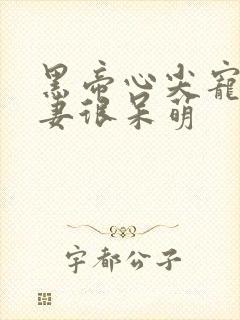 黑帝心尖宠
妻很呆萌
宇都公子